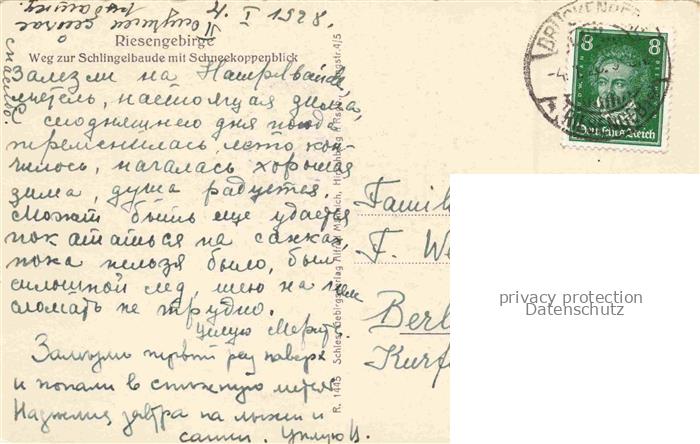 4. I 1928.
Получил сейчас
рубашку.
спасибо.
Riesengebirge
Weg zur Schlingelbaude mit Schneekoppenblick
Залезли на
мятель, настоящая зима,
с сегодняшнего дня погода
переменилась, лето кон-
чилось, началась хорошая
зима, душа радуется.
Может быть еще удастся
покататься на санках,
пока нельзя было, был
сплошной лед, шею на нем
сломать не трудно.
Целую
первый раз наверх
и попали в снежную метель
завтра на лыжи и
санки. Целую И.
R. 1445 Schles. Gebirgsverlag
8 8
Deutsches Reich
Famil
F. We
Berl
Kurf
privacy protection
Datenschutz